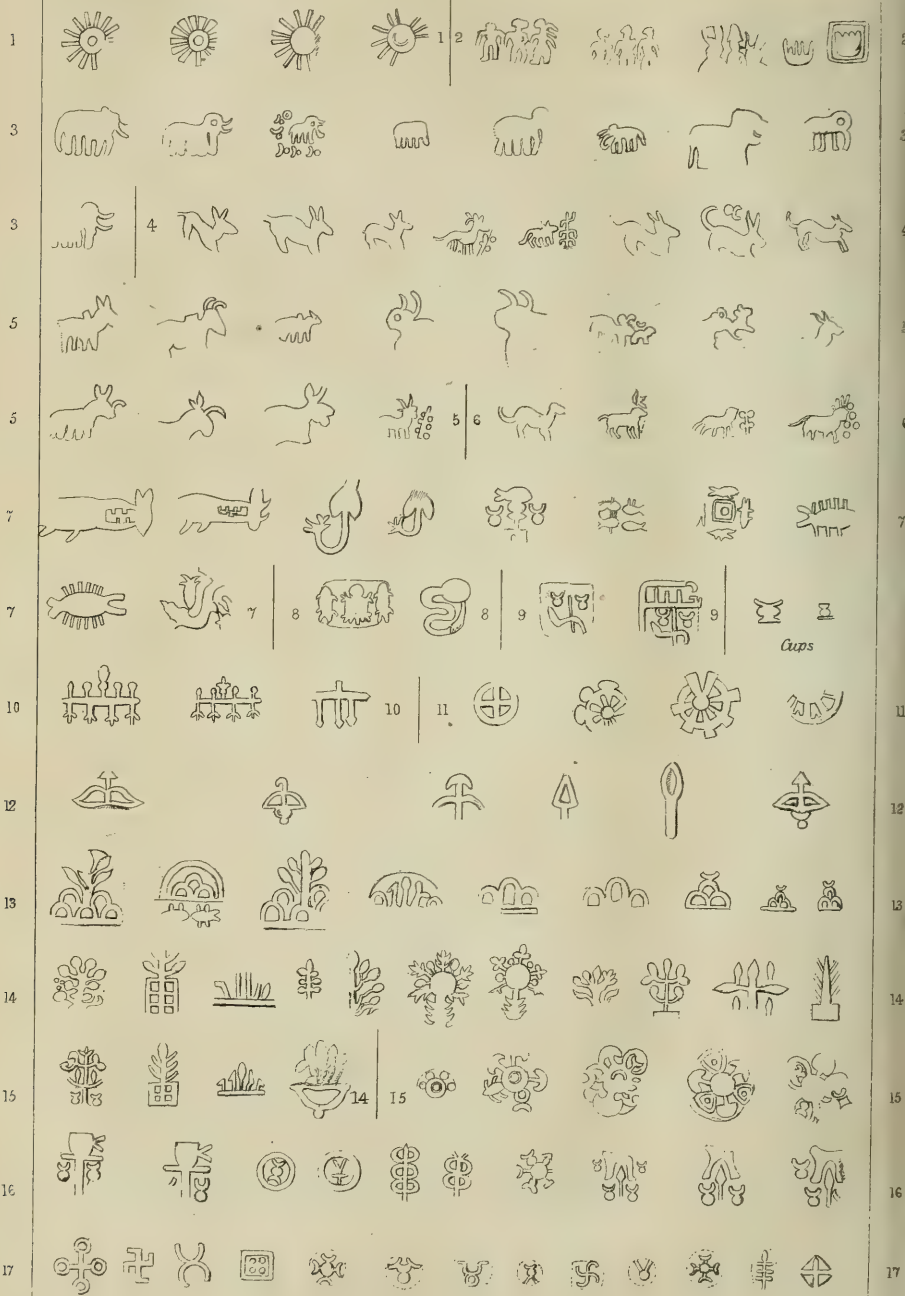 1 1 2
3
3 4
5
5 5 6
7 7
7 7 8 8 9 9
Cups
10 10 11 11
12 12
13 13
14 14
15 14 15 15
16 16
17 17